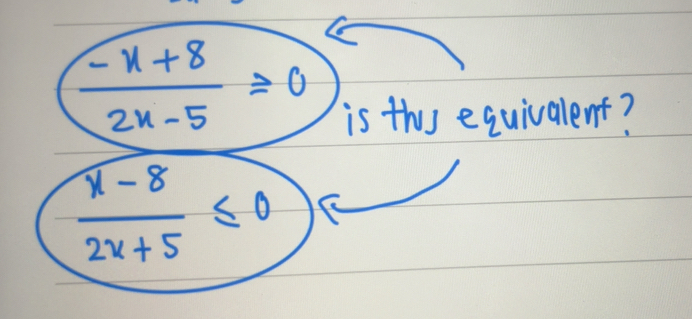 -x + 8
2x - 5 ≥ 0
is this equivalent?
x - 8
2x + 5 ≤ 0